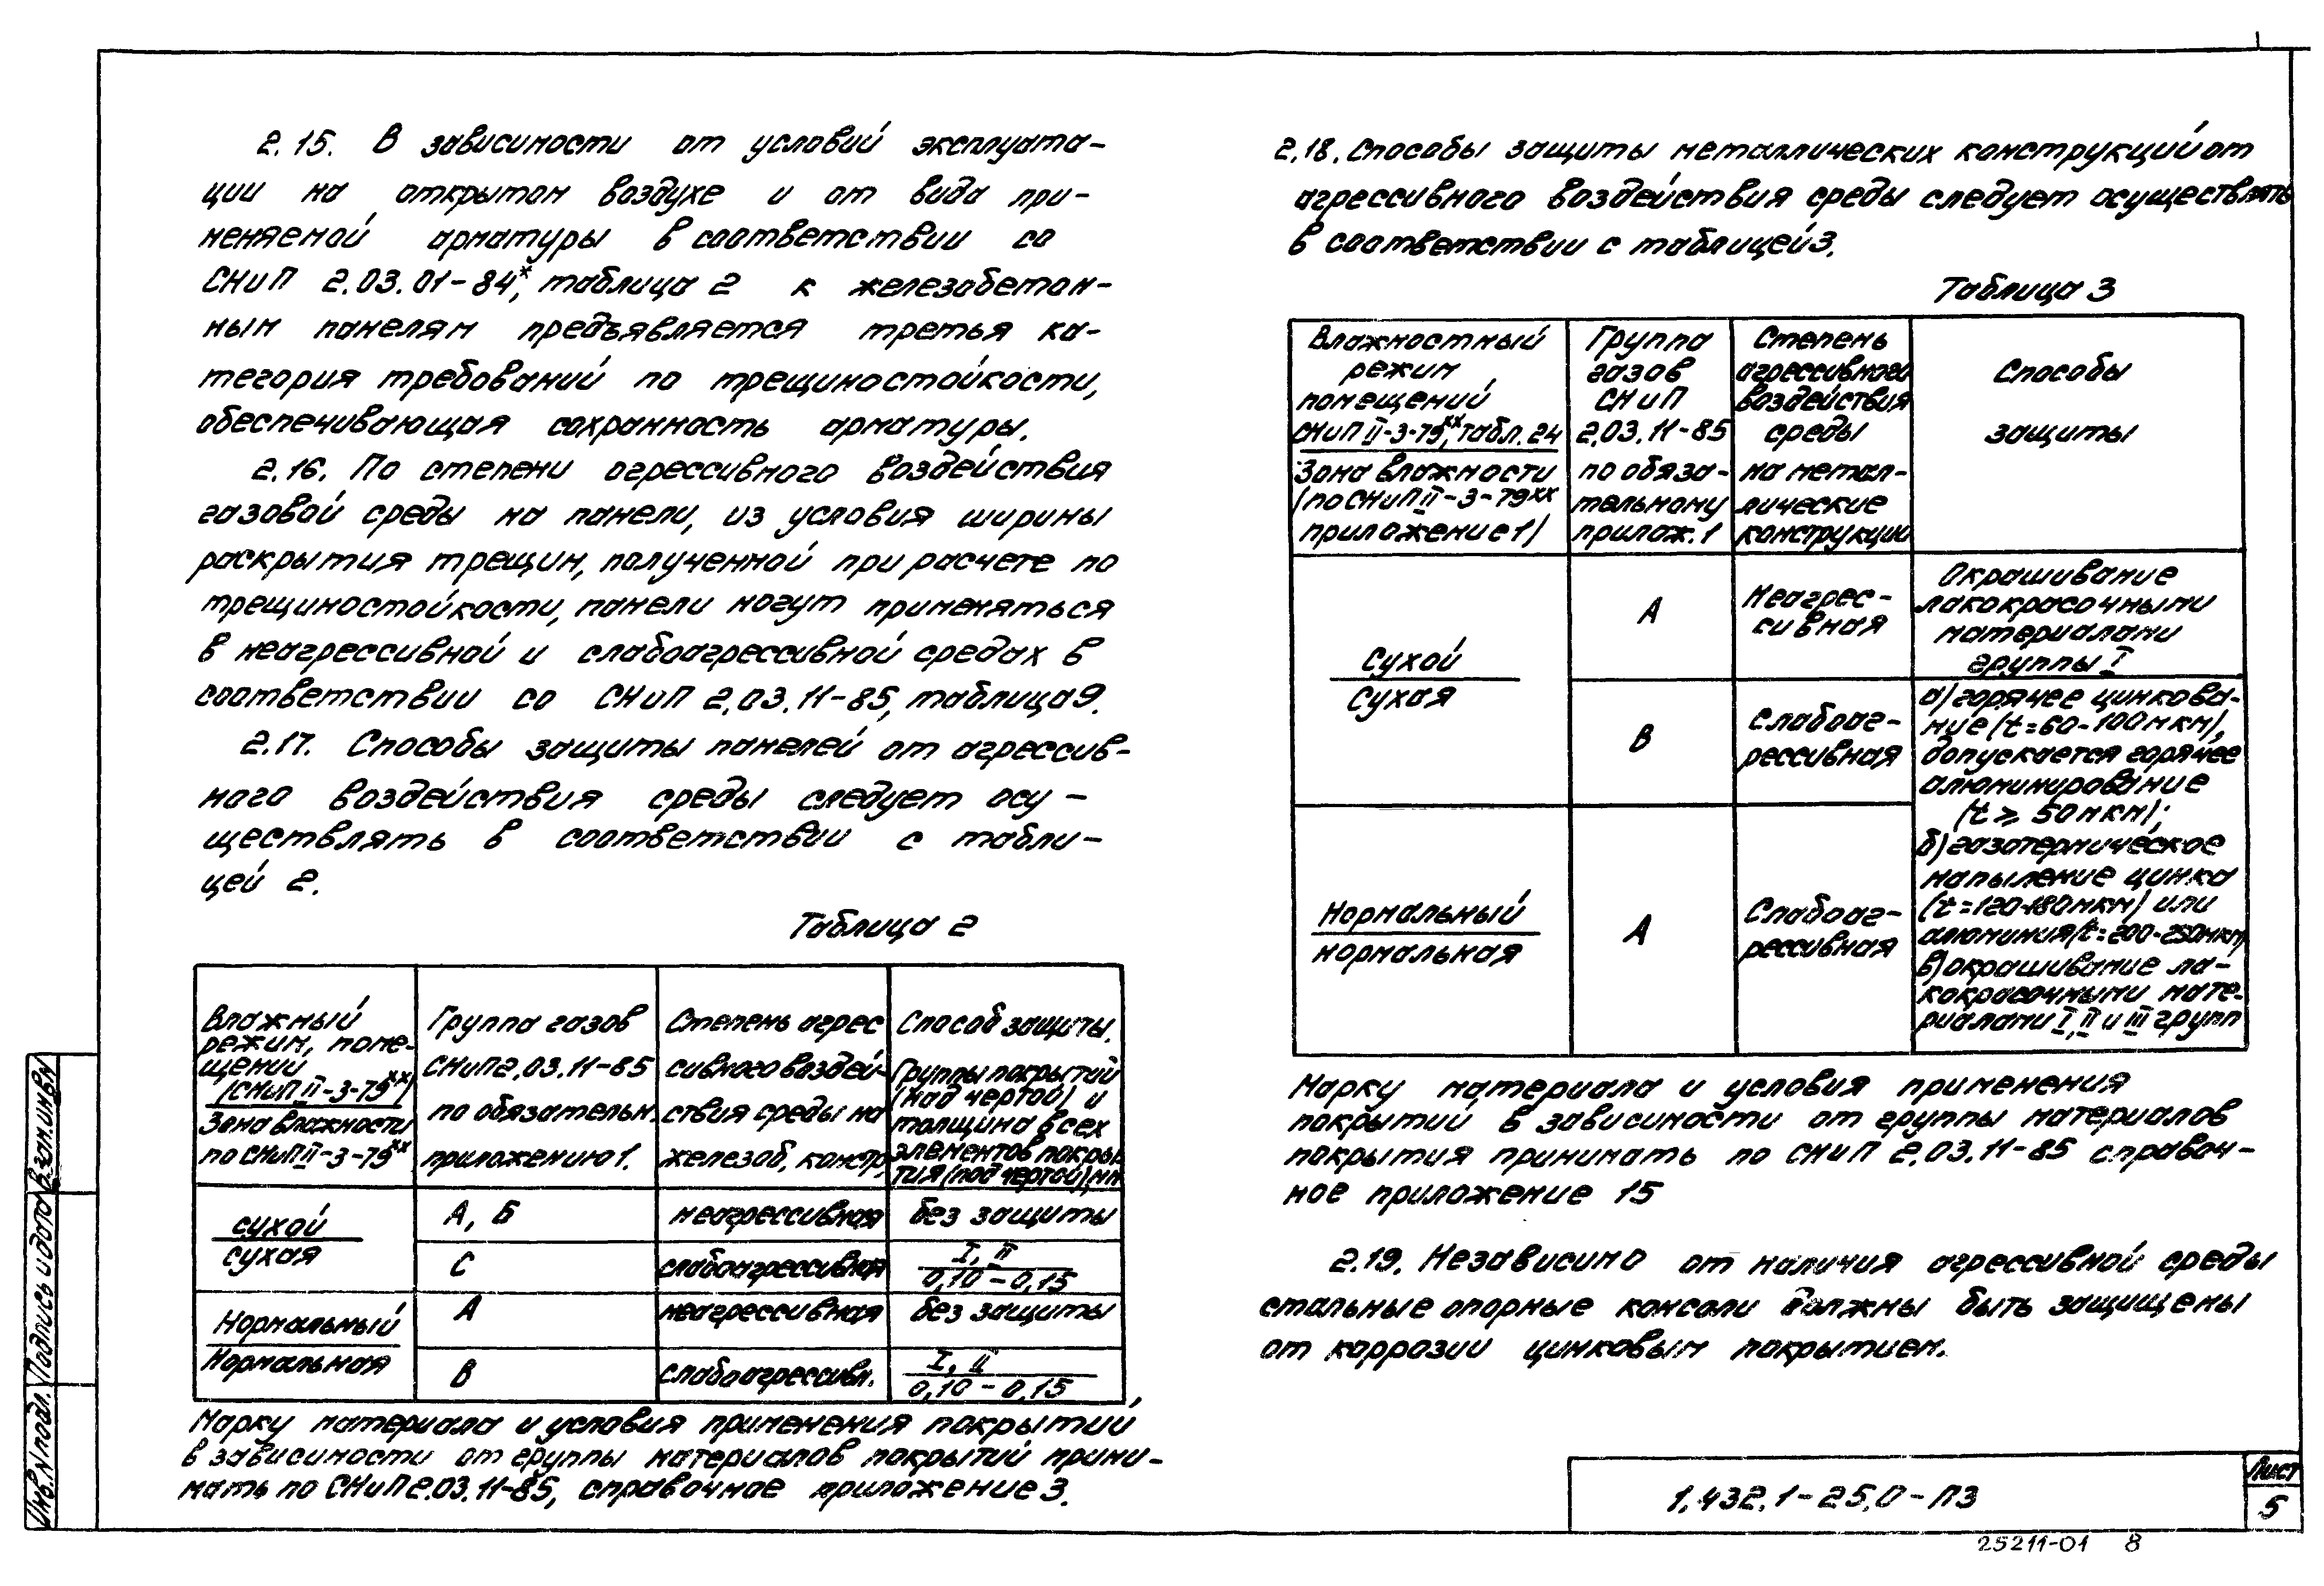 2.15. В зависимости от условий эксплуата-
ции на открытом воздухе и от вида при-
меняемой арматуры в соответствии со
СНиП 2.03.01-84*, таблица 2 к железобетон-
ным панелям предъявляется третья ка-
тегория требований по трещиностойкости,
обеспечивающая сохранность арматуры.
2.16. По степени агрессивного воздействия
газовой среды на панели, из условия ширины
раскрытия трещин, полученной при расчете по
трещиностойкости, панели могут применяться
в неагрессивной и слабоагрессивной средах в
соответствии со СНиП 2.03.11-85, таблица 9.
2.17. Способы защиты панелей от агрессив-
ного воздействия среды следует осу-
ществлять в соответствии с табли-
цей 2.
Таблица 2
Влажный
режим, поме-
щений
(СНиП II-3-79xx)
Зона влажности
по СНиП II-3-79xx
Группа газов
СНиП 2.03.11-85
по обязательн.
приложению 1.
Степень агрес
сивного воздей-
ствия среды на
железоб. констр.
Способ защиты.
Группы покрытий
(над чертой) и
толщина всех
элементов покры
тия (под чертой), мм
сухой
сухая
А, Б
неагрессивная
без защиты
С
слабоагрессивная
I, II
0,10 - 0,15
Нормальный
Нормальная
А
неагрессивная
без защиты
В
слабоагрессивн.
I, II
0,10 - 0,15
Марку материала и условия применения покрытий
в зависимости от группы материалов покрытий прини-
мать по СНиП 2.03.11-85, справочное приложение 3.
2.18. Способы защиты металлических конструкций от
агрессивного воздействия среды следует осуществлять
в соответствии с таблицей 3.
Таблица 3
Влажностный
режим
помещений
СНиП II-3-79xx, табл. 24
Зона влажности
(по СНиП II-3-79xx
приложение 1)
Группа
газов
СНиП
2.03.11-85
по обяза-
тельному
прилож. 1
Степень
агрессивного
воздействия
среды
на метал-
лические
конструкции
Способы
защиты
Сухой
Сухая
А
Неагрес-
сивная
Окрашивание
лакокрасочными
материалами
группы I
В
Слабоаг-
рессивная
а) горячее цинкова-
ние (t=60-100мкм),
допускается горячее
алюминирование
(t ≥ 50мкм);
б) газотермическое
напыление цинка
(t=120-180мкм) или
алюминия (t=200-250мкм)
в) окрашивание ла-
кокрасочными мате-
риалами I, II и III групп
Нормальный
нормальная
А
Слабоаг-
рессивная
Марку материала и условия применения
покрытий в зависимости от группы материалов
покрытия принимать по СНиП 2.03.11-85 справоч-
ное приложение 15
2.19. Независимо от наличия агрессивной среды
стальные опорные консоли должны быть защищены
от коррозии цинковым покрытием.
Инв. N подл. Подпись и дата Взам. инв N
1.432.1-25.0-ПЗ
Лист
5
25211-01 8